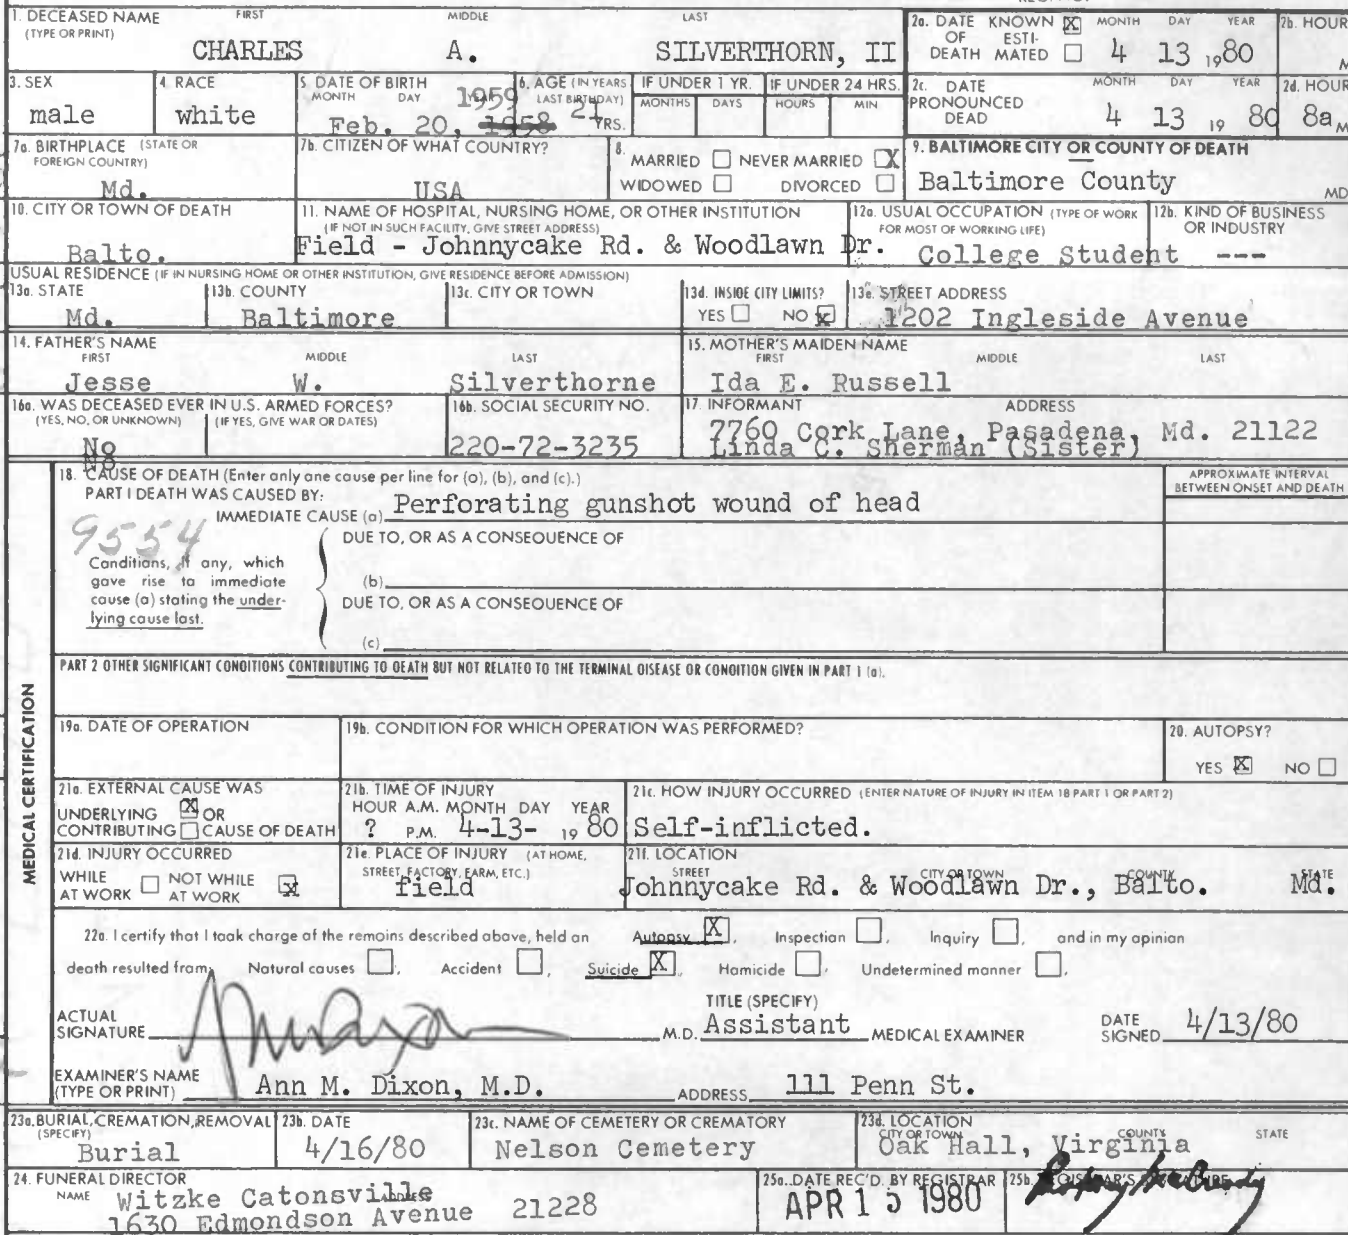 1. DECEASED NAME FIRST MIDDLE LAST
(TYPE OR PRINT)
CHARLES A. SILVERTHORN, II
2a. DATE KNOWN X MONTH DAY YEAR
OF ESTI-
DEATH MATED 4 13 1980
2b. HOUR
M
3. SEX
male
4. RACE
white
5. DATE OF BIRTH
MONTH DAY 1959
Feb. 20, 1958
6. AGE (IN YEARS
LAST BIRTHDAY)
21 YRS.
IF UNDER 1 YR.
MONTHS DAYS
IF UNDER 24 HRS.
HOURS MIN
2c. DATE MONTH DAY YEAR
PRONOUNCED
DEAD 4 13 19 80
2d. HOUR
8a M
7a. BIRTHPLACE (STATE OR
FOREIGN COUNTRY)
Md.
7b. CITIZEN OF WHAT COUNTRY?
USA
8.
MARRIED NEVER MARRIED X
WIDOWED DIVORCED
9. BALTIMORE CITY OR COUNTY OF DEATH
Baltimore County
MD
10. CITY OR TOWN OF DEATH
Balto.
11. NAME OF HOSPITAL, NURSING HOME, OR OTHER INSTITUTION
(IF NOT IN SUCH FACILITY, GIVE STREET ADDRESS)
Field - Johnnycake Rd. & Woodlawn Dr.
12a. USUAL OCCUPATION (TYPE OF WORK
FOR MOST OF WORKING LIFE)
College Student
12b. KIND OF BUSINESS
OR INDUSTRY
---
USUAL RESIDENCE (IF IN NURSING HOME OR OTHER INSTITUTION, GIVE RESIDENCE BEFORE ADMISSION)
13a. STATE
Md.
13b. COUNTY
Baltimore
13c. CITY OR TOWN
13d. INSIDE CITY LIMITS?
YES NO X
13e. STREET ADDRESS
1202 Ingleside Avenue
14. FATHER'S NAME
FIRST MIDDLE LAST
Jesse W. Silverthorne
15. MOTHER'S MAIDEN NAME
FIRST MIDDLE LAST
Ida E. Russell
16a. WAS DECEASED EVER IN U.S. ARMED FORCES?
(YES, NO, OR UNKNOWN) (IF YES, GIVE WAR OR DATES)
No
No
16b. SOCIAL SECURITY NO.
220-72-3235
17. INFORMANT ADDRESS
7760 Cork Lane, Pasadena, Md. 21122
Linda C. Sherman (Sister)
MEDICAL CERTIFICATION
18. CAUSE OF DEATH (Enter only one cause per line for (a), (b), and (c).)
PART I DEATH WAS CAUSED BY:
IMMEDIATE CAUSE (a) Perforating gunshot wound of head
APPROXIMATE INTERVAL
BETWEEN ONSET AND DEATH
9554
DUE TO, OR AS A CONSEQUENCE OF
Conditions, if any, which
gave rise to immediate
cause (a) stating the under-
lying cause last.
(b)
DUE TO, OR AS A CONSEQUENCE OF
(c)
PART 2 OTHER SIGNIFICANT CONDITIONS CONTRIBUTING TO DEATH BUT NOT RELATED TO THE TERMINAL DISEASE OR CONDITION GIVEN IN PART 1 (a).
19a. DATE OF OPERATION
19b. CONDITION FOR WHICH OPERATION WAS PERFORMED?
20. AUTOPSY?
YES X NO
21a. EXTERNAL CAUSE WAS
UNDERLYING X OR
CONTRIBUTING CAUSE OF DEATH
21b. TIME OF INJURY
HOUR A.M. MONTH DAY YEAR
? P.M. 4-13- 19 80
21c. HOW INJURY OCCURRED (ENTER NATURE OF INJURY IN ITEM 18 PART 1 OR PART 2)
Self-inflicted.
21d. INJURY OCCURRED
WHILE NOT WHILE X
AT WORK AT WORK
21e. PLACE OF INJURY (AT HOME,
STREET, FACTORY, FARM, ETC.)
field
21f. LOCATION
STREET CITY OR TOWN COUNTY STATE
Johnnycake Rd. & Woodlawn Dr., Balto. Md.
22a. I certify that I took charge of the remains described above, held an Autopsy X, Inspection , Inquiry , and in my opinion
death resulted from: Natural causes , Accident , Suicide X, Homicide , Undetermined manner .
ACTUAL
SIGNATURE M.D.
TITLE (SPECIFY)
Assistant MEDICAL EXAMINER
DATE
SIGNED 4/13/80
EXAMINER'S NAME
(TYPE OR PRINT) Ann M. Dixon, M.D. ADDRESS 111 Penn St.
23a. BURIAL, CREMATION, REMOVAL
(SPECIFY)
Burial
23b. DATE
4/16/80
23c. NAME OF CEMETERY OR CREMATORY
Nelson Cemetery
23d. LOCATION
CITY OR TOWN COUNTY STATE
Oak Hall, Virginia
24. FUNERAL DIRECTOR
NAME ADDRESS
Witzke Catonsville
1630 Edmondson Avenue 21228
25a. DATE REC'D. BY REGISTRAR
APR 15 1980
25b. REGISTRAR'S SIGNATURE